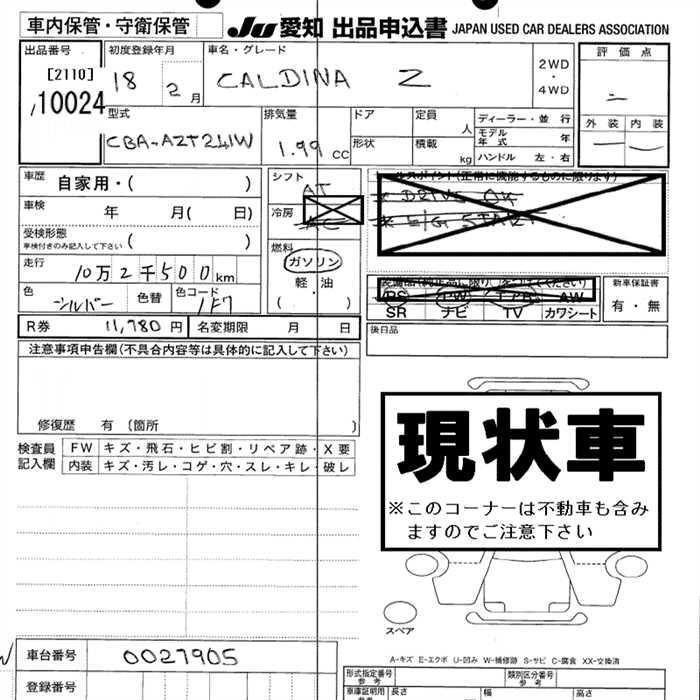 車内保管・守衛保管 JU 愛知 出品申込書 JAPAN USED CAR DEALERS ASSOCIATION
出品番号 初度登録年月 車名・グレード 評価点
[2110] 18 2月 CALDINA Z 2WD・4WD
10024
型式 排気量 ドア 定員 人 ディーラー・並行 外装 内装
CBA-AZT241W 1.99cc 形状 積載 kg モデル年式 年
ハンドル 左・右
車歴 自家用・( ) シフト AT セールスポイント(正常に機能するものに限ります)
車検 年 月( 日) 冷房 AC
受検形態 車検付きのみ記入して下さい ( ) 燃料 ガソリン
走行 10万2千500km 軽・油
色 シルバー 色替 色コード 1F7 ( )
PS PW AW 新車保証書
SR ナビ TV カワシート 有・無
R券 11,780円 名変期限 月 日 後日品
注意事項申告欄(不具合内容等は具体的に記入して下さい)
修復歴 有 (箇所 )
検査員記入欄 FW キズ・飛石・ヒビ割・リペア跡・X要
内装 キズ・汚レ・コゲ・穴・スレ・キレ・破レ
現状車
※このコーナーは不動車も含み
ますのでご注意下さい
スペア
A-キズ E-エクボ U-凹み W-補修跡 S-サビ C-腐食 XX-交換済
車台番号 0027905
登録番号
形式指定番号 参考 類別区分番号 参考
車庫証明用 参考 長さ 幅 高さ